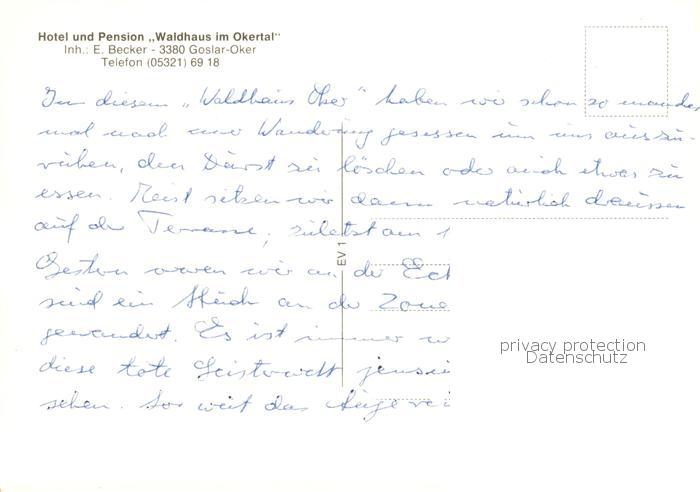 Hotel und Pension „Waldhaus im Okertal"
Inh.: E. Becker - 3380 Goslar-Oker
Telefon (05321) 69 18
In diesem „Waldhaus Oker" haben wir schon so manches
mal nach einer Wanderung gesessen um uns auszu-
ruhen, den Durst zu löschen oder auch etwas zu
essen. Meist sitzen wir dann natürlich draussen
auf der Terrasse, zuletzt am 1
Gestern waren wir an der Eck
sind ein Stück an der Zone
gewandert. Es ist immer w
diese tote Geisterwelt jensei
sehen. So weit das Auge rei
EV 1
privacy protection
Datenschutz